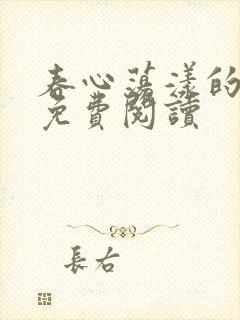 春心蕩漾的
免費閱讀
長右